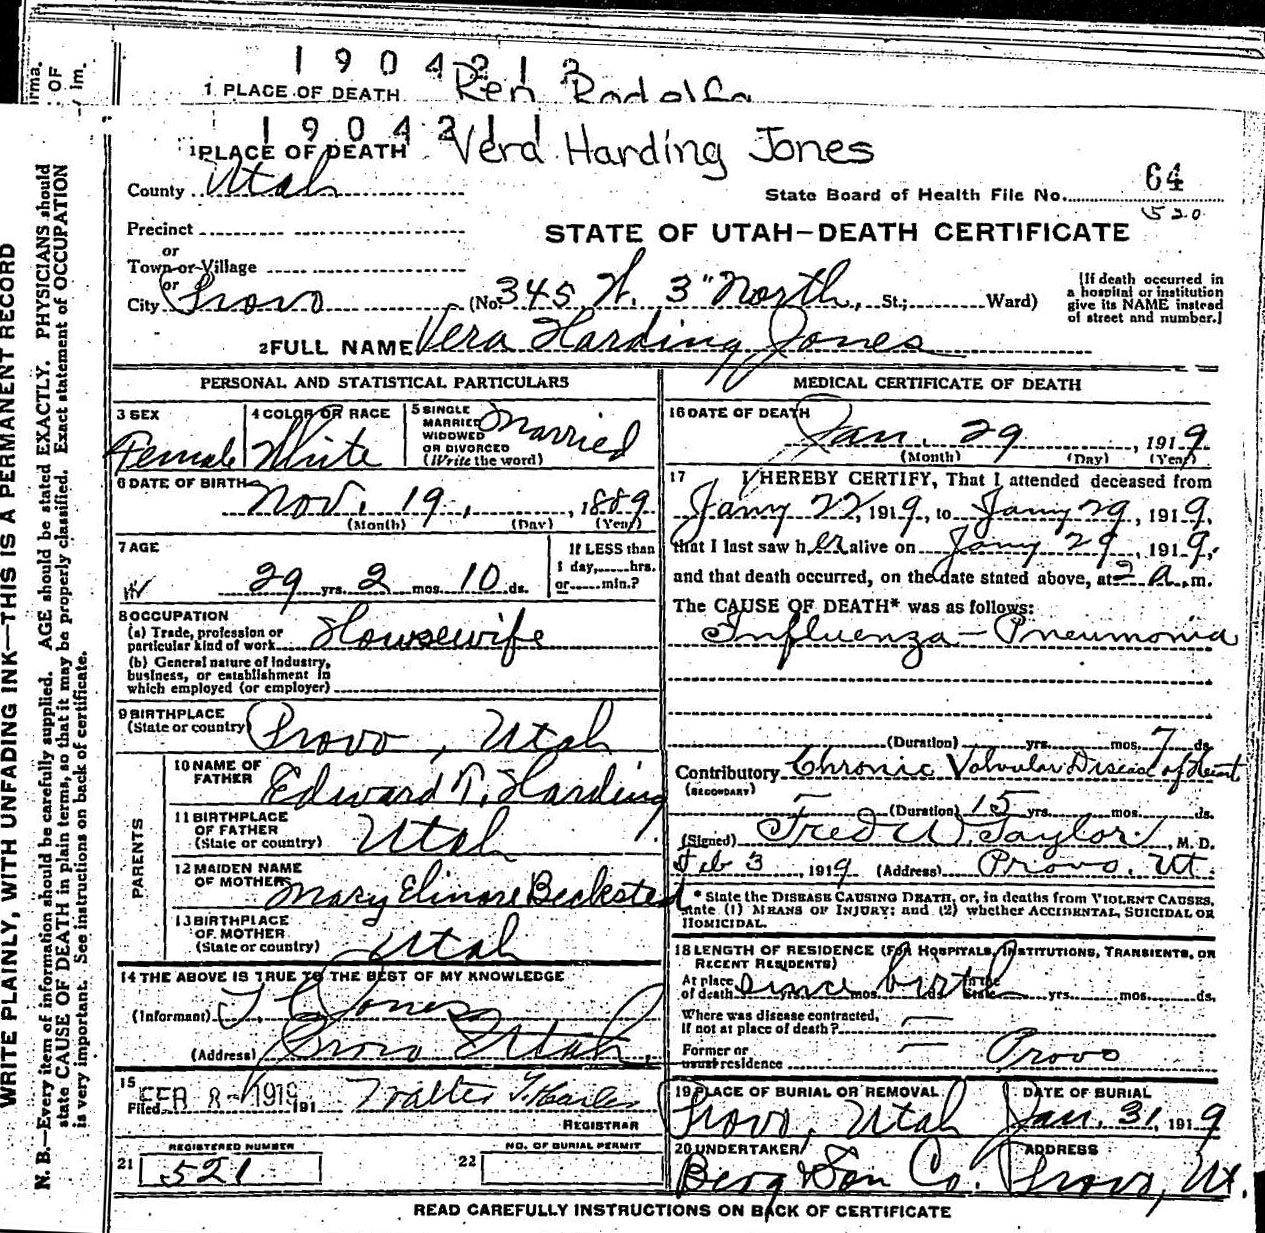 1904212
1 PLACE OF DEATH Ren Rodolfa
1904211
1 PLACE OF DEATH Vera Harding Jones
County Utah
State Board of Health File No. 64
520
Precinct
or
Town or Village
or
City Provo (No. 345 W. 3" North, St.; Ward)
STATE OF UTAH—DEATH CERTIFICATE
[If death occurred in a hospital or institution give its NAME instead of street and number.]
2 FULL NAME Vera Harding Jones
PERSONAL AND STATISTICAL PARTICULARS
3 SEX Female
4 COLOR OR RACE White
5 SINGLE MARRIED WIDOWED OR DIVORCED (Write the word) Married
6 DATE OF BIRTH Nov. 19, 1889
(Month) (Day) (Year)
7 AGE 29 yrs. 2 mos. 10 ds.
If LESS than 1 day, hrs. or min.?
8 OCCUPATION
(a) Trade, profession or particular kind of work Housewife
(b) General nature of industry, business, or establishment in which employed (or employer)
9 BIRTHPLACE (State or country) Provo, Utah
PARENTS
10 NAME OF FATHER Edward T. Harding
11 BIRTHPLACE OF FATHER (State or country) Utah
12 MAIDEN NAME OF MOTHER Mary Elinore Becksted
13 BIRTHPLACE OF MOTHER (State or country) Utah
14 THE ABOVE IS TRUE TO THE BEST OF MY KNOWLEDGE
(Informant) Jones
(Address) Provo Utah
15 Filed FEB 8 - 1919 191 Walter
REGISTRAR
21 REGISTERED NUMBER 521
22 NO. OF BURIAL PERMIT
MEDICAL CERTIFICATE OF DEATH
16 DATE OF DEATH Jan. 29, 1919
(Month) (Day) (Year)
17 I HEREBY CERTIFY, That I attended deceased from
Jany 22, 1919, to Jany 29, 1919,
that I last saw her alive on Jany 29, 1919,
and that death occurred, on the date stated above, at 2 A. m.
The CAUSE OF DEATH* was as follows:
Influenza - Pneumonia
(Duration) yrs. mos. 7 ds.
Contributory (SECONDARY) Chronic Valvular Disease of Heart
(Duration) 15 yrs. mos. ds.
(Signed) Fred W. Taylor, M. D.
Feb 3, 1919 (Address) Provo. Ut.
* State the DISEASE CAUSING DEATH, or, in deaths from VIOLENT CAUSES, state (1) MEANS OF INJURY; and (2) whether ACCIDENTAL, SUICIDAL OR HOMICIDAL.
18 LENGTH OF RESIDENCE (FOR HOSPITALS, INSTITUTIONS, TRANSIENTS, OR RECENT RESIDENTS)
At place of death since birth yrs. mos. ds. In the State yrs. mos. ds.
Where was disease contracted, if not at place of death? —
Former or usual residence — Provo
19 PLACE OF BURIAL OR REMOVAL Provo, Utah
DATE OF BURIAL Jan. 31, 1919
20 UNDERTAKER Berg & Son Co.
ADDRESS Provo, Ut.
READ CAREFULLY INSTRUCTIONS ON BACK OF CERTIFICATE
WRITE PLAINLY, WITH UNFADING INK—THIS IS A PERMANENT RECORD
N. B.—Every item of information should be carefully supplied. AGE should be stated EXACTLY. PHYSICIANS should
state CAUSE OF DEATH in plain terms, so that it may be properly classified. Exact statement of OCCUPATION
is very important. See instructions on back of certificate.